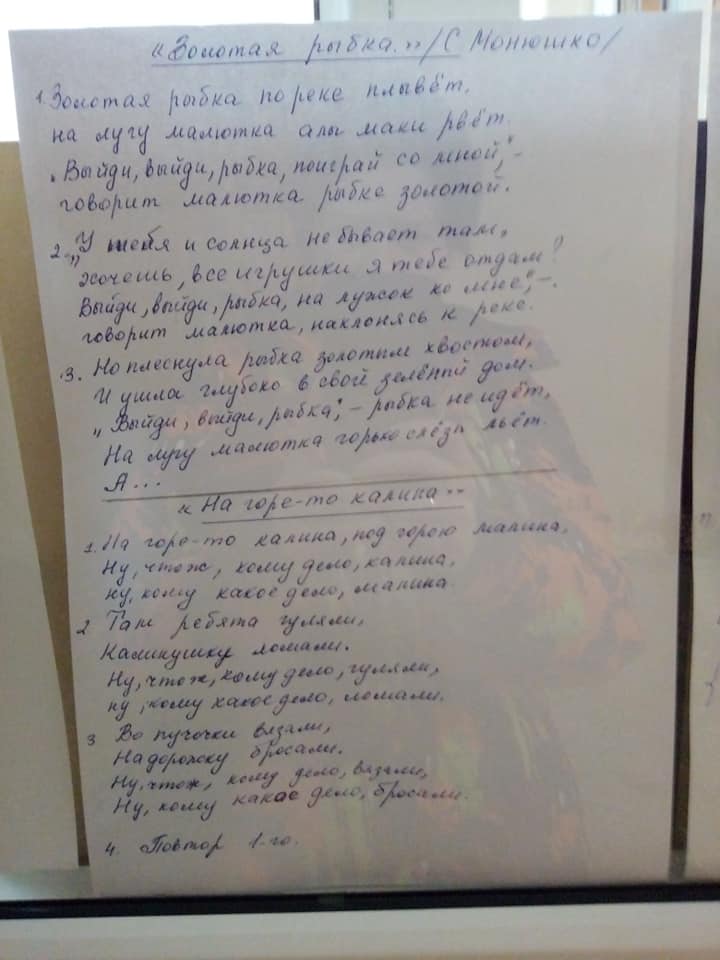 «Золотая рыбка.» /С Монюшко/
1. Золотая рыбка по реке плывёт,
на лугу малютка алы маки рвёт.
„Выйди, выйди, рыбка, поиграй со мной,“ –
говорит малютка рыбке золотой.
2. „У тебя и солнца не бывает там,
хочешь, все игрушки я тебе отдам?
Выйди, выйди, рыбка, на лужок ко мне,“ –
говорит малютка, наклонясь к реке.
3. Но плеснула рыбка золотым хвостом,
И ушла глубоко в свой зелёный дом.
„Выйди, выйди, рыбка“, – рыбка не идёт,
На лугу малютка горько слёзы льёт.
А...
«На горе-то калина»
1. На горе-то калина, под горою малина,
Ну, чтож, кому дело, калина,
ну, кому какое дело, малина.
2 Там ребята гуляли,
Калинушку ломали.
Ну, чтож, кому дело, гуляли,
ну, кому какое дело, ломали.
3 Во пучочки вязали,
На дорожку бросали.
Ну, чтож, кому дело, вязали,
Ну, кому какое дело, бросали.
4. Повтор 1-го.